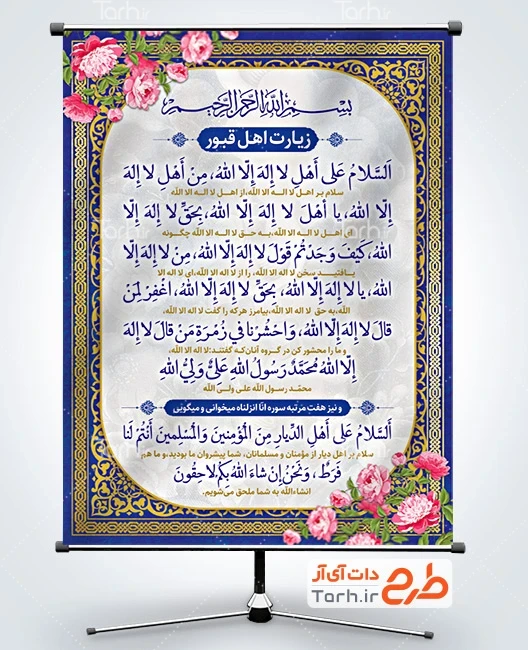 بِسْمِ اللهِ الرَّحْمنِ الرَّحِيمِ
زیارت اهل قبور
اَلسَّلامُ عَلى اَهْلِ لا اِلهَ اِلَّا اللهُ، مِنْ اَهْلِ لا اِلهَ
سلام بر اهل لا اله الا الله، از اهل لا اله الا الله
اِلَّا اللهُ، يا اَهْلَ لا اِلهَ اِلَّا اللهُ، بِحَقِّ لا اِلهَ اِلَّا
ای اهل لا اله الا الله، به حق لا اله الا الله چگونه
اللهُ، كَيْفَ وَجَدْتُمْ قَوْلَ لا اِلهَ اِلَّا اللهُ، مِنْ لا اِلهَ اِلَّا
یافتید سخن لا اله الا الله، را از لا اله الا الله، ای لا اله الا
اللهُ، يا لا اِلهَ اِلَّا اللهُ، بِحَقِّ لا اِلهَ اِلَّا اللهُ، اغْفِرْ لِمَنْ
الله، به حق لا اله الا الله، بیامرز هر که را گفت لا اله الا الله،
قالَ لا اِلهَ اِلَّا اللهُ، وَ احْشُرْنا في زُمْرَةِ مَنْ قالَ لا اِلهَ
و ما را محشور کن در گروه آنان که گفتند: لا اله الا الله،
اِلَّا اللهُ مُحَمَّدٌ رَسُولُ اللهِ عَلِيٌّ وَلِيُّ اللهِ
محمّد رسول الله علی ولی الله
و نیز هفت مرتبه سوره انّا انزلناه میخوانی و میگویی
اَلسَّلامُ عَلى اَهْلِ الدِّيارِ مِنَ الْمُؤْمِنينَ وَالْمُسْلِمينَ اَنْتُمْ لَنا
سلام بر اهل دیار از مؤمنان و مسلمانان، شما پیشروان ما بودید، و ما هم
فَرَطٌ، وَنَحْنُ اِنْ شاءَ اللهُ بِكُمْ لاحِقُونَ
انشاءالله به شما ملحق می‌شویم.
طرح دات آی‌آر
Tarh.ir